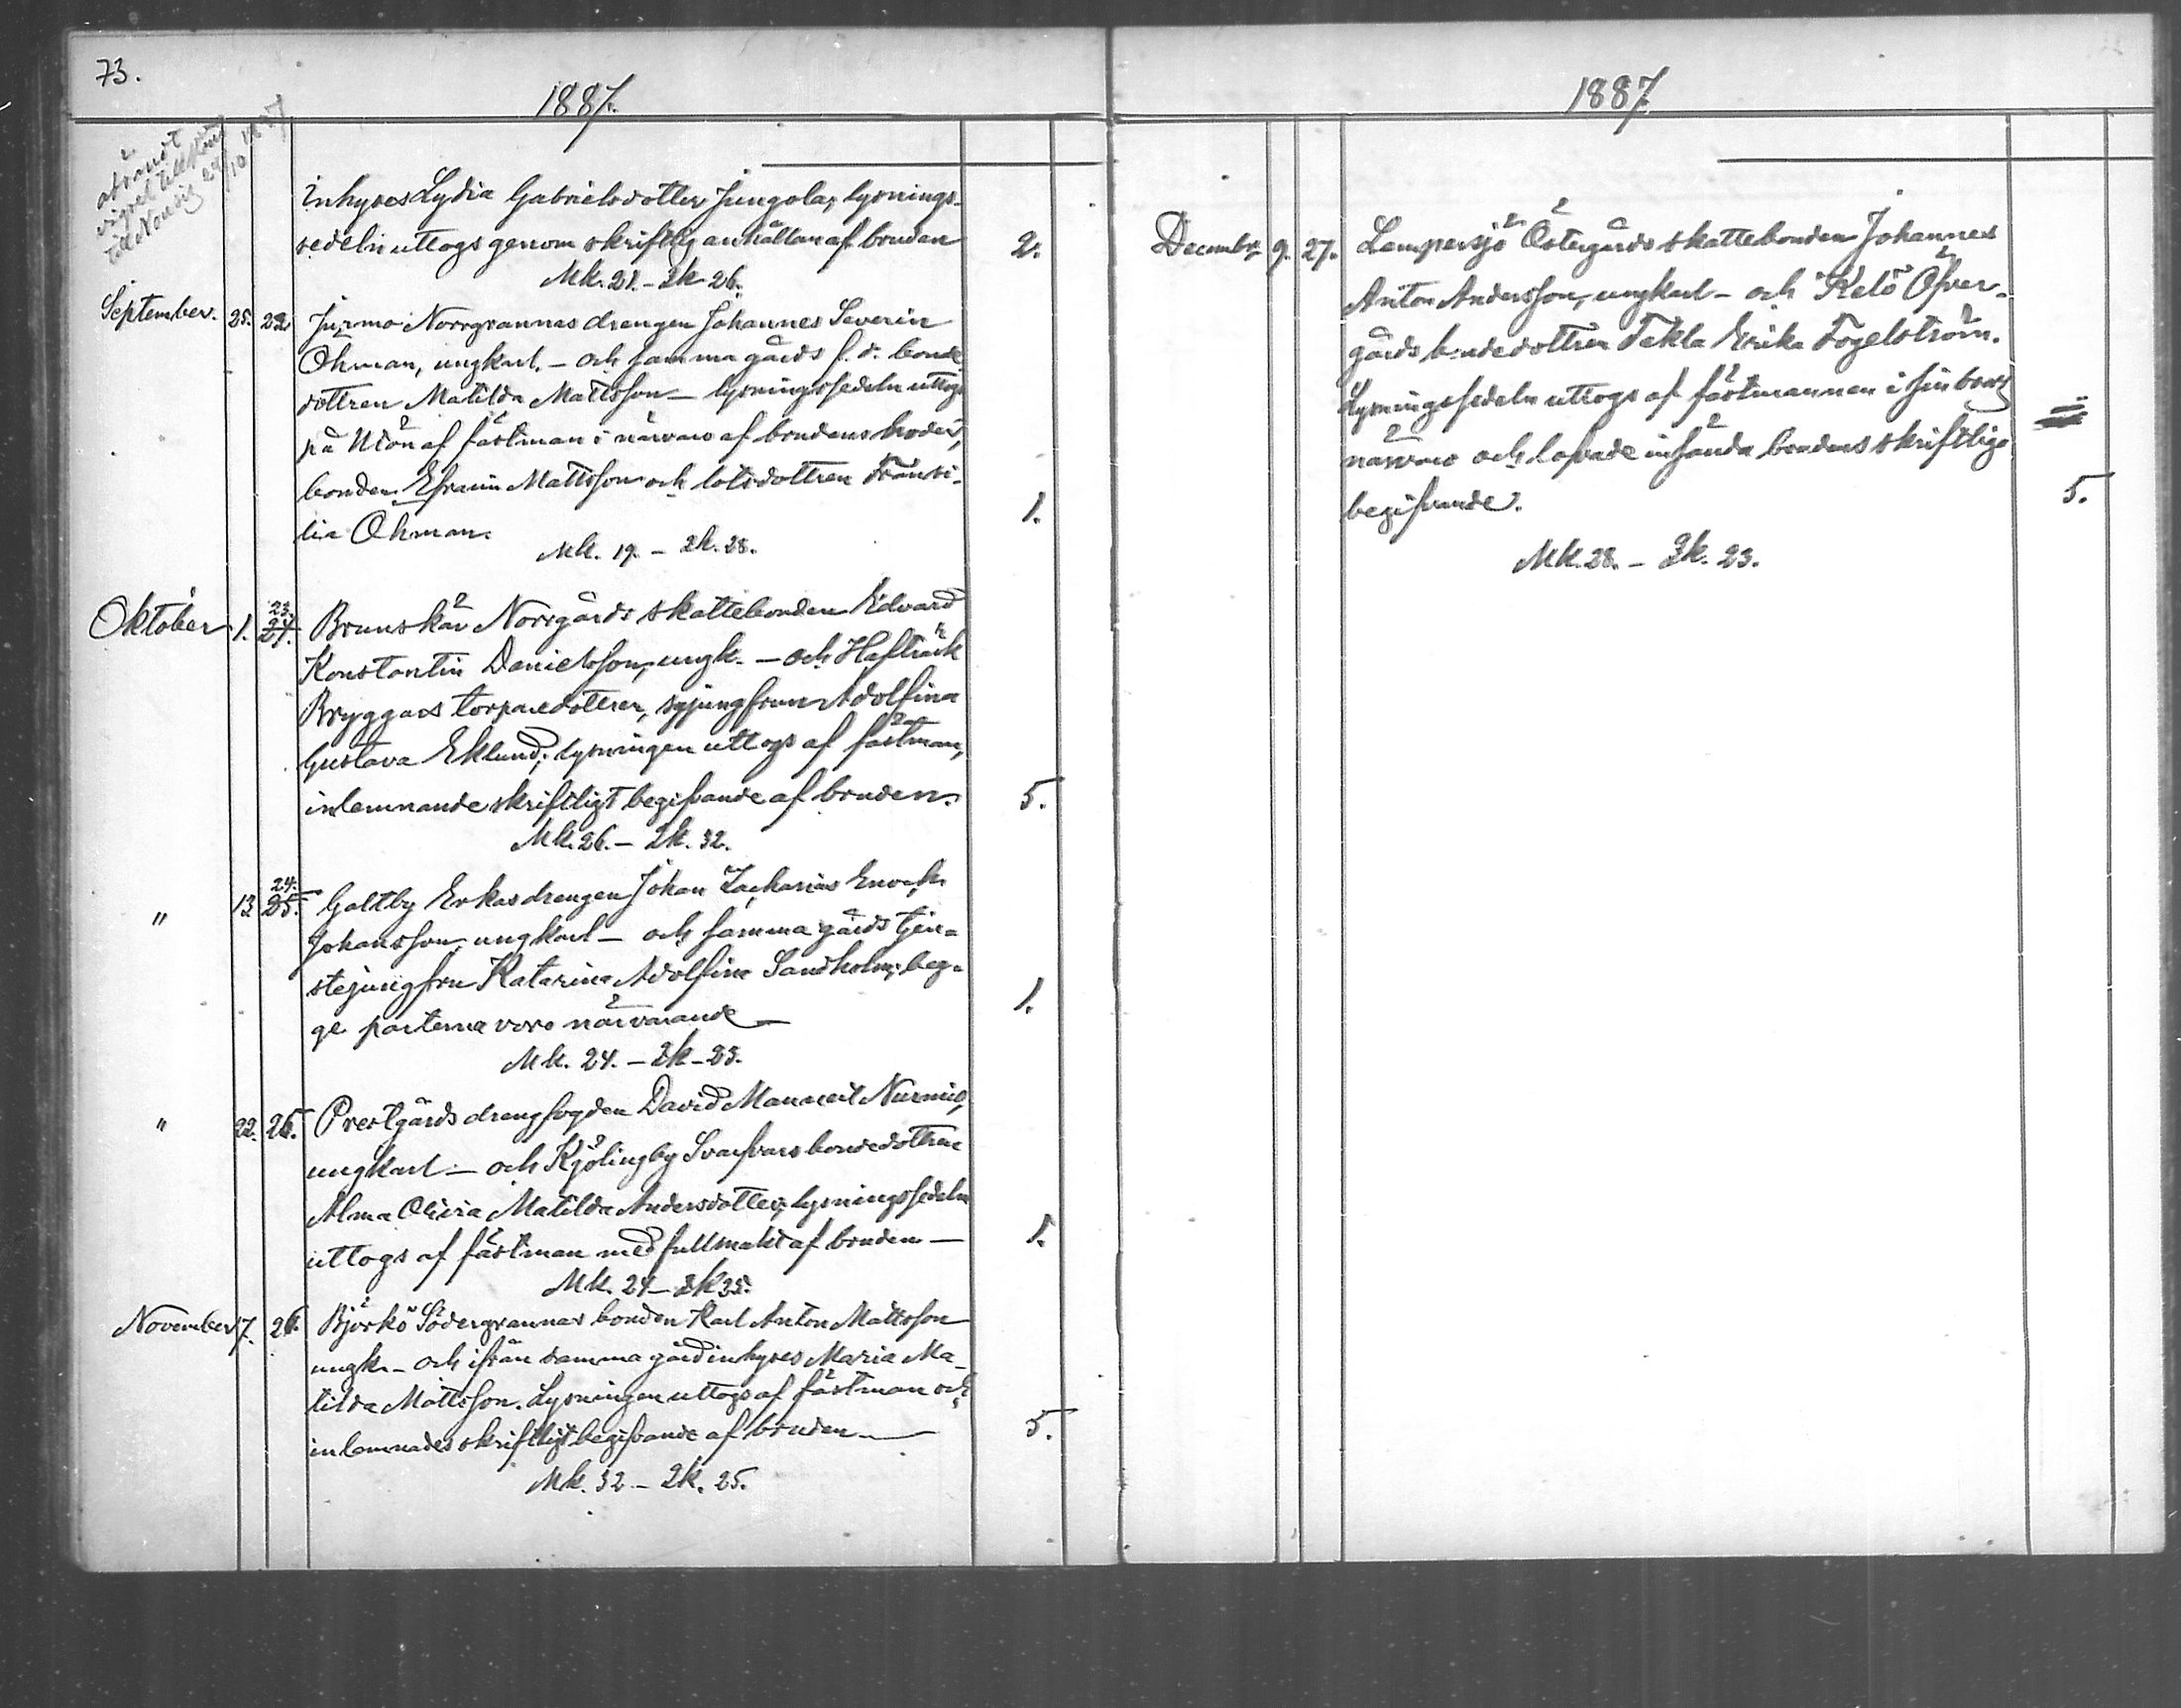 73.
1887.
afsändt
vigsel
till 24/10 1887
inhyses Lydia Gabrielsdotter Jungola; lysnings-
sedeln uttogs genom skriftlig anhållan af bruden 2.
Mk. 21. - Qk 26.
September. 25. 22. Jurmo Norrgrannas drengen Johannes Severin
Öhman, ungkarl. - och samma gårds f. d. bonde
dottren Matilda Mattsson - lysningssedeln uttogs
på Utön af fästman i närvaro af brudens broder,
bonden Efraim Mattsson och lotsdottren Fransi-
lia Öhman. 1.
Mk. 19. - Qk. 28.
Oktober 1. 23. 24. Brunskär Norrgårds skattebonden Edvard
Konstantin Danielsson, ungk. - och Hafträsk
Bryggars torparedottren, syjungfrun Adolfina
Gustava Eklund; lysningen uttogs af fästman,
inlemnande skriftligt begifvande af bruden. 5.
Mk. 26. - Qk. 32.
" 13. 24. 25. Galtby Erkas drengen Johan Zacharias Enoch
Johansson, ungkarl - och samma gårds tjen-
stejungfru Katarina Adolfina Sandholm; beg-
ge parterna voro närvarande 1.
Mk. 24. - Qk - 23.
" 22. 25. Prestgårds drengfogden David Manneil Nurmio,
ungkarl - och Kyölingby Svarfvars bondedottren
Alma Olivia Matilda Andersdotter; lysningssedeln
uttogs af fästman med fullmakt af bruden - 1.
Mk. 24 - Qk 35.
November 7. 26. Björkö Södergrannas bonden Karl Anton Mattsson
ungk. - och ifrån samma gård inhyses Maria Ma-
tilda Mattsson. Lysningen uttogs af fästman och
inlemnades skriftligt begifvande af bruden 5.
Mk. 32 - Qk. 25.
1887
Decembr. 9. 27. Lempersjö Östergårds skattebonden Johannes
Anton Andersson, ungkarl - och Kelö Öfver-
gårds bondedottren Tekla Erika Fogelström.
Lysningssedeln uttogs af fästmannen i sin brors
närvaro och lofvade insända brudens skriftliga
begifvande. 5.
Mk. 28. - Qk. 23.